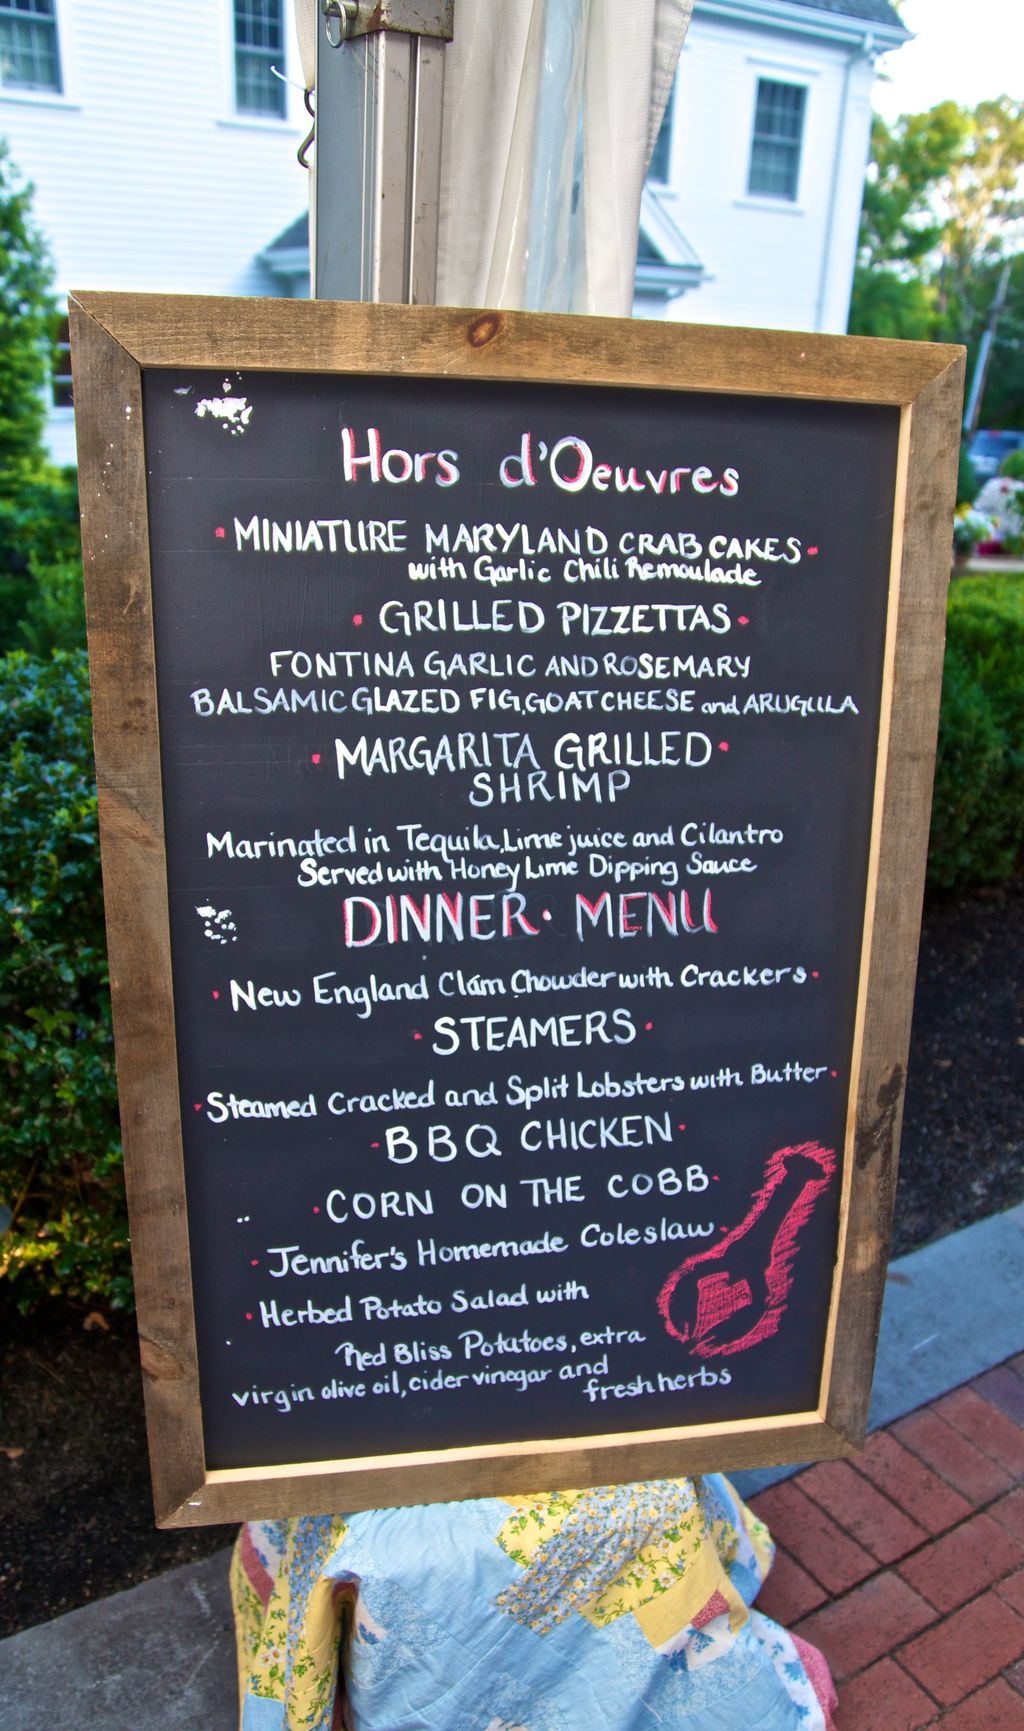 Hors d'Oeuvres
MINIATURE MARYLAND CRAB CAKES
with Garlic Chili Remoulade
GRILLED PIZZETTAS
FONTINA GARLIC AND ROSEMARY
BALSAMIC GLAZED FIG, GOAT CHEESE and ARUGULA
MARGARITA GRILLED
SHRIMP
Marinated in Tequila, Lime juice and Cilantro
Served with Honey Lime Dipping Sauce
DINNER · MENU
New England Clam Chowder with Crackers
STEAMERS
Steamed Cracked and Split Lobsters with Butter
BBQ CHICKEN
CORN ON THE COBB
Jennifer's Homemade Coleslaw
Herbed Potato Salad with
Red Bliss Potatoes, extra
virgin olive oil, cider vinegar and
fresh herbs